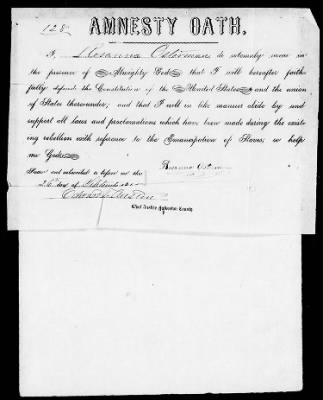 128
AMNESTY OATH.
I, Rosanna Osterman do solemnly swear in
the presence of Almighty God that I will hereafter faith
fully defend the Constitution of the United States and the union
of States thereunder; and that I will in like manner abide by and
support all laws and proclamations which have been made during the exist
ing rebellion with reference to the Emancipation of Slaves, so help
me God.
Rosanna Osterman
Sworn and subscribed to before me this
26 day of
Chief Justice Galveston County